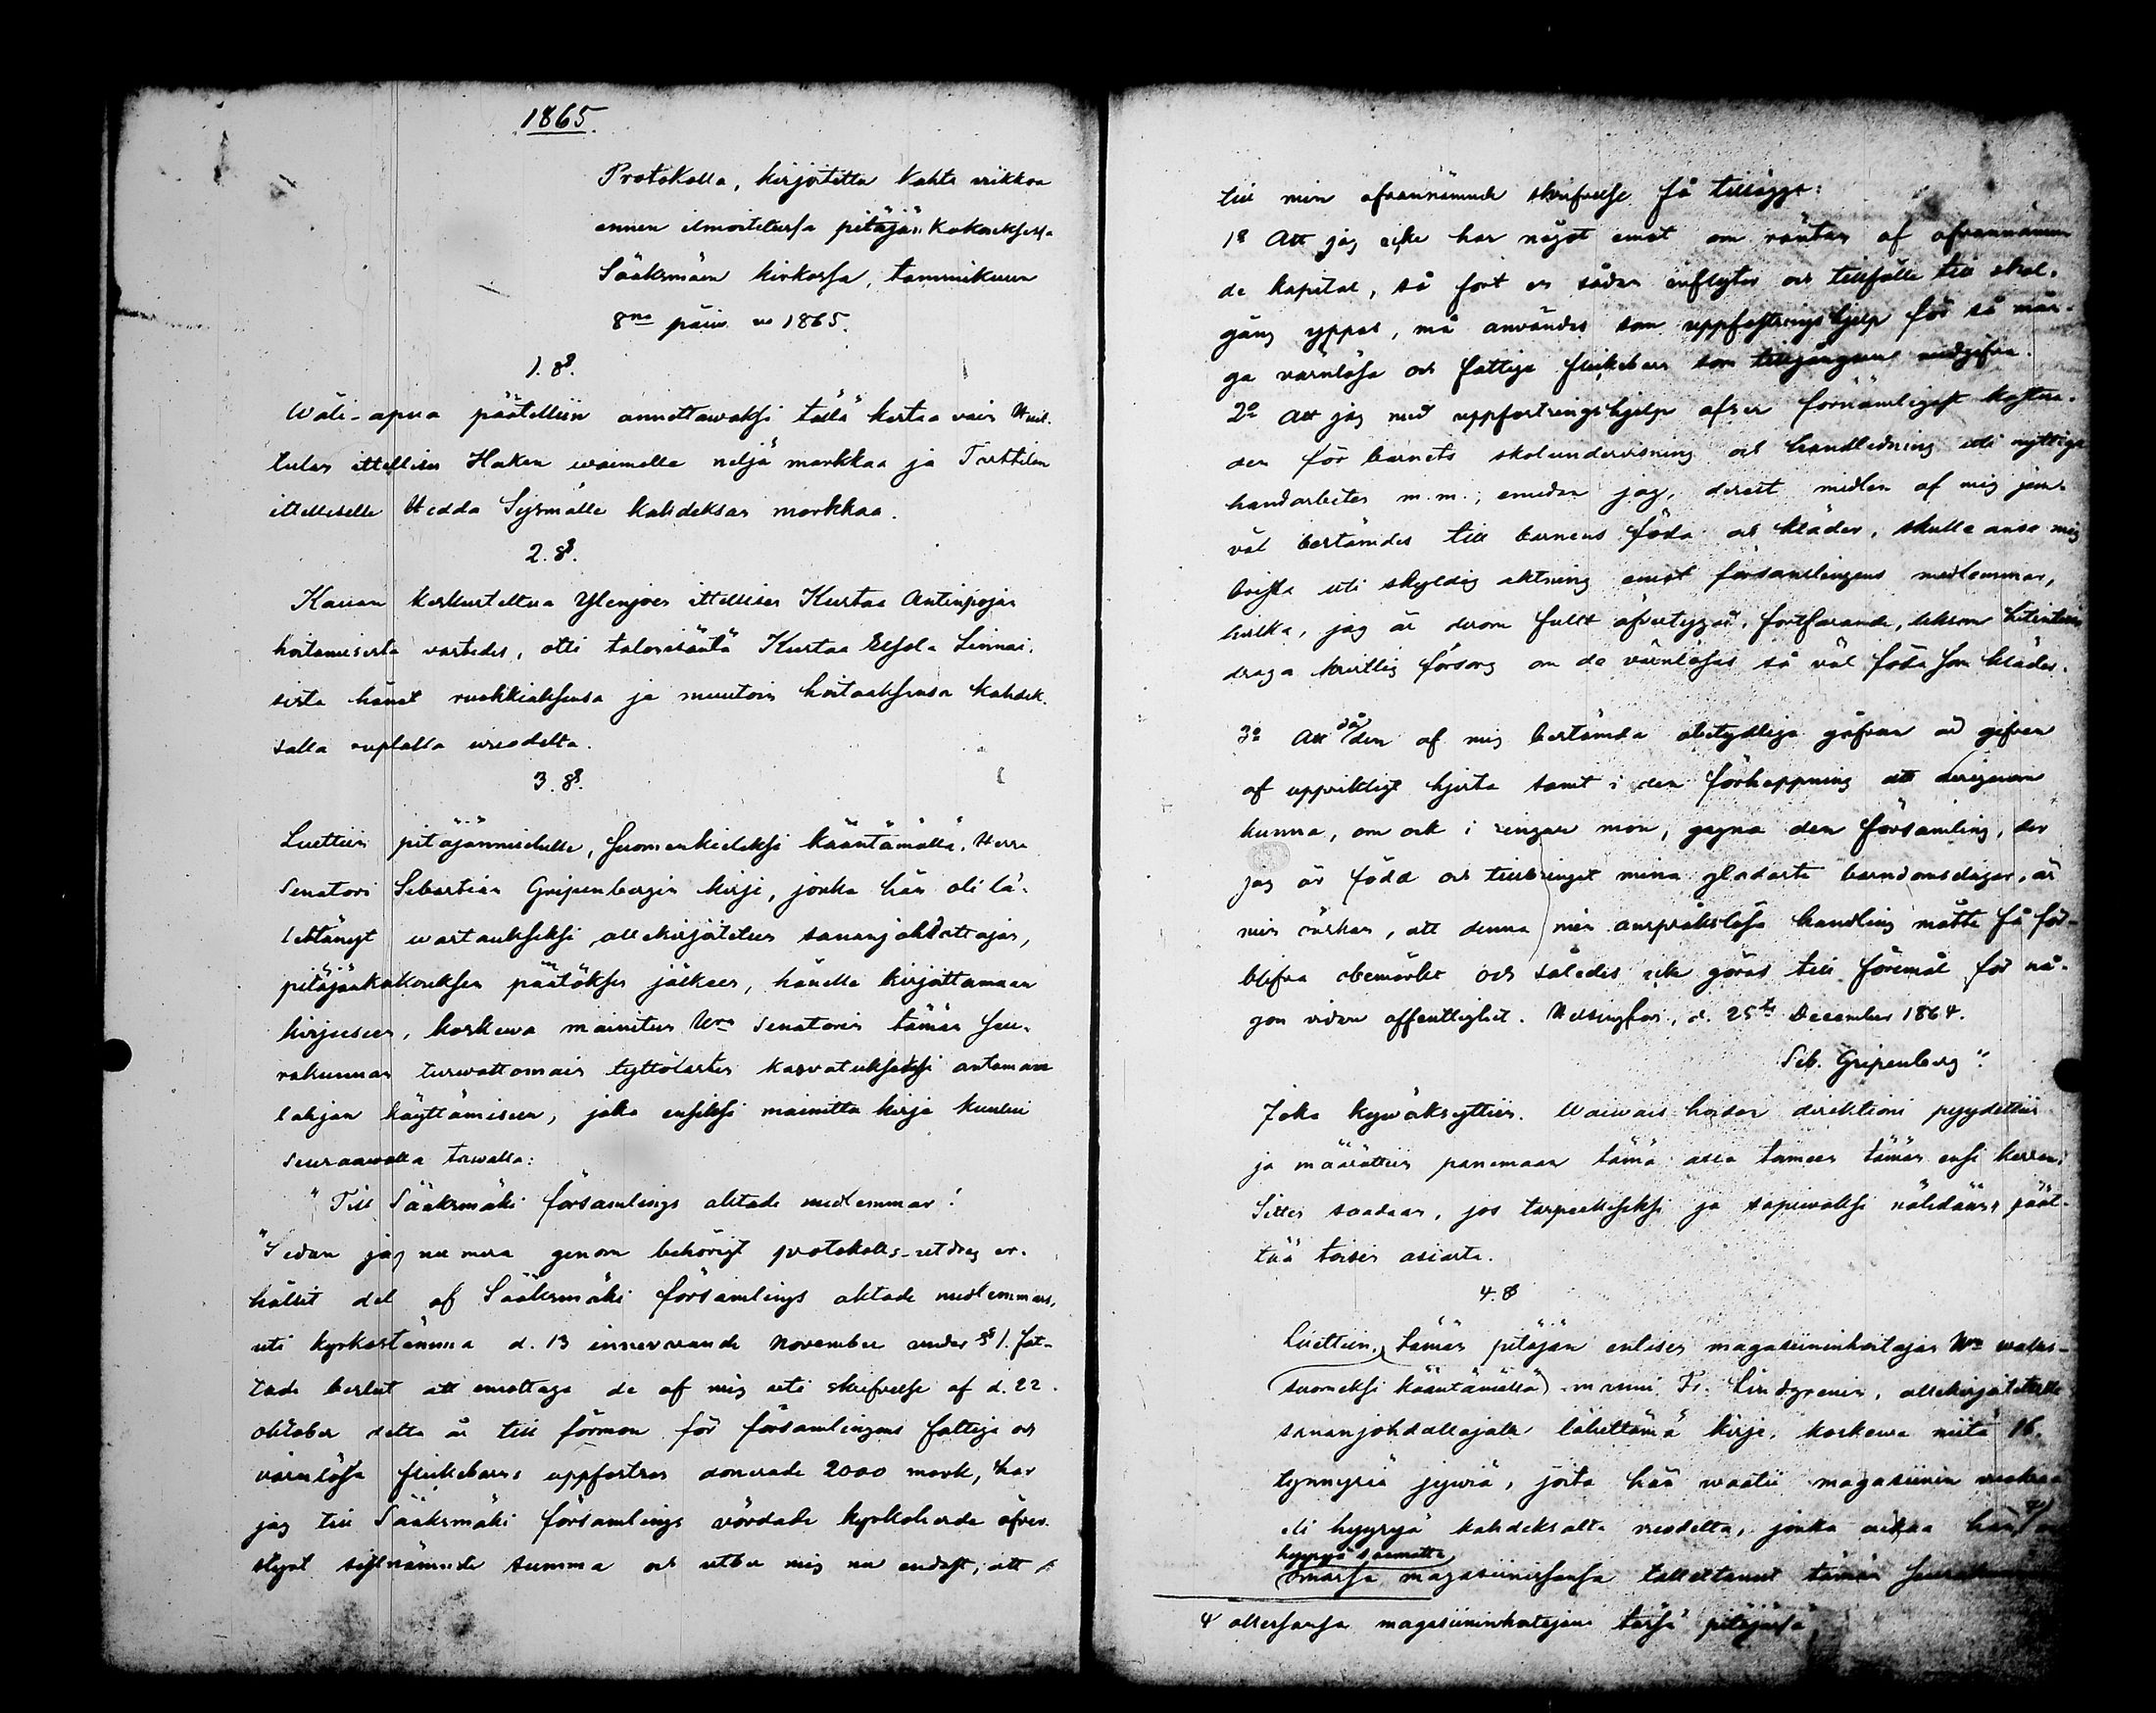 1865.
Protokolla, kirjoitettu kahta viikkoa
ennen ilmoitetussa pitäjän kokouksessa
Sääksmäen kirkossa, tammikuun
8na päiv. v. 1865.
1. §.
Wäli-apua päätettiin annettawaksi tällä kertaa vain
tulan ittellisen Haken waimolle neljä markkaa ja Tarttilan
ittelliselle Hedda Sysmälle kahdeksan markkaa.
2. §.
Kauan keskusteltua Ylenjoen ittellisen Kustaa Antinpojan
hoitamisesta vastedes, otti talonisäntä Kustaa Eskola Linnai-
sista hänet ruokkiaksensa ja muutoin hoitaaksensa kahdek-
salla ruplalla vuodelta.
3. §.
Luettiin pitäjänmiehille, suomenkieleksi kääntämällä, Herra
Senatori Sebastian Gripenbergin kirje, jonka hän oli lä-
hettänyt wastaukseksi allekirjoitetun sananjohdattajan,
pitäjänkokouksen päätöksen jälkeen, hänelle kirjottamaan
kirjeeseen, koskewa mainitun Hra Senatorin tämän seu-
rakunnan turwattomain tyttölasten kasvatukseksi antaman
lahjan käyttämiseen, joka ensiksi mainittu kirje kuului
seuraawalla tawalla:
"Till Sääksmäki församlings aktade medlemmar!
"Sedan jag nu mera genom behörigt protokolls-utdrag er-
hållit del af Sääksmäki församlings aktade medlemmars,
uti kyrkostämma d. 13 innevarande November under § 1. fat-
tade beslut att emottaga de af mig uti skrifvelse af d. 22.
oktober detta år till förmon för församlingens fattiga och
värnlösa flickebarns uppfostran donerade 2000 mark, har
jag till Sääksmäki församlings vördade kyrkoherde öfver-
skynt sistnämnde summa och utber mig nu endast, att
till min ofvannämnde skrifvelse få tillägga:
1o Att jag icke har något emot om räntan af ofvannämn-
de kapital, så fort en sådan inflyter och tillfälle till skol-
gång yppas, må användas som uppfostringshjelp för så mån-
ga värnlösa och fattiga flickebarn som tillgångarne medgifva.
2o Att jag med uppfostringshjelp afser förnämligast kostna-
den för barnets skolundervisning och handledning uti nyttiga
handarbeten m.m.; emedan jag, derest medlen af mig jem-
väl bestämdes till barnens föda och kläder, skulle anse mig
brista uti skyldig aktning emot församlingens medlemmar,
hvilka, jag är derom fullt öfvertygad, fortfarande, liksom hitintills,
draga kristlig försorg om de värnlösas så väl föda som kläder.
3o Att då den af mig bestämda obetydliga gåfvan är gifven
af uppriktigt hjerta samt i den förhoppning att derigenom
kunna, om ock i ringare mon, gagna den församling, der
jag är född och tillbringat mina gladaste barndomsdagar, är
min önskan, att denna min anspråkslösa handling måtte få för-
blifva obemärkt och således icke göras till föremål för nå-
gon vidare offentlighet. Helsingfors, d. 25te December 1864.
Seb. Gripenberg".
Joka hywäksyttiin. Waiwais hoidon direktioni pyydettiin
ja määrättiin panemaan tämä asia toimeen tämän ensi herran
Sitten saadaan, jos tarpeelliseksi ja sopiwaksi nähdään, päät-
tää toisin asiasta.
4. §
Luettiin, tämän pitäjän entisen magasiininhoitajan Hra walles-
(suomeksi kääntämällä) manni Fr. Lindgrenin, allekirjoitetulle
sananjohdattajalle lähettämä kirje, koskewa niitä 16.
tynnyriä jywiä, joita hän waatii magasiinin vuokraa
eli hyyryä kahdeksalta vuodelta, jonka aikaa hän 4)
hyyryä saamatta
omassa magasiinissansa tallettanut tämän
4 ollessansa magasiininhoitajana tässä pitäjässä